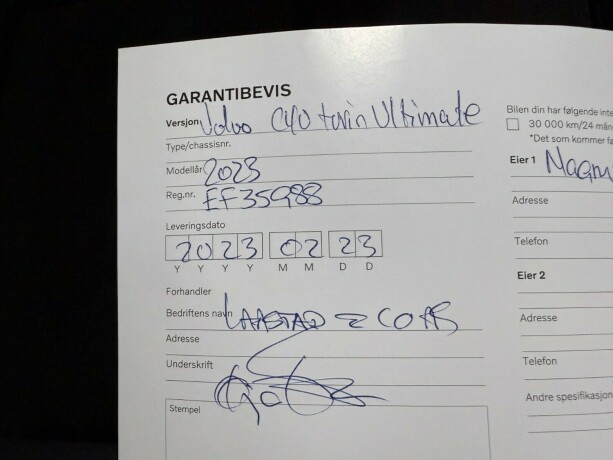 GARANTIBEVIS
Versjon Volvo C40 twin Ultimate
Type/chassisnr.
Modellår 2023
Reg.nr. EF35988
Leveringsdato
2023 02 23
Y Y Y Y M M D D
Forhandler
Bedriftens navn
Adresse
Underskrift
Stempel
Bilen din har følgende
30 000 km/24
*Det som kommer
Eier 1
Adresse
Telefon
Eier 2
Adresse
Telefon
Andre